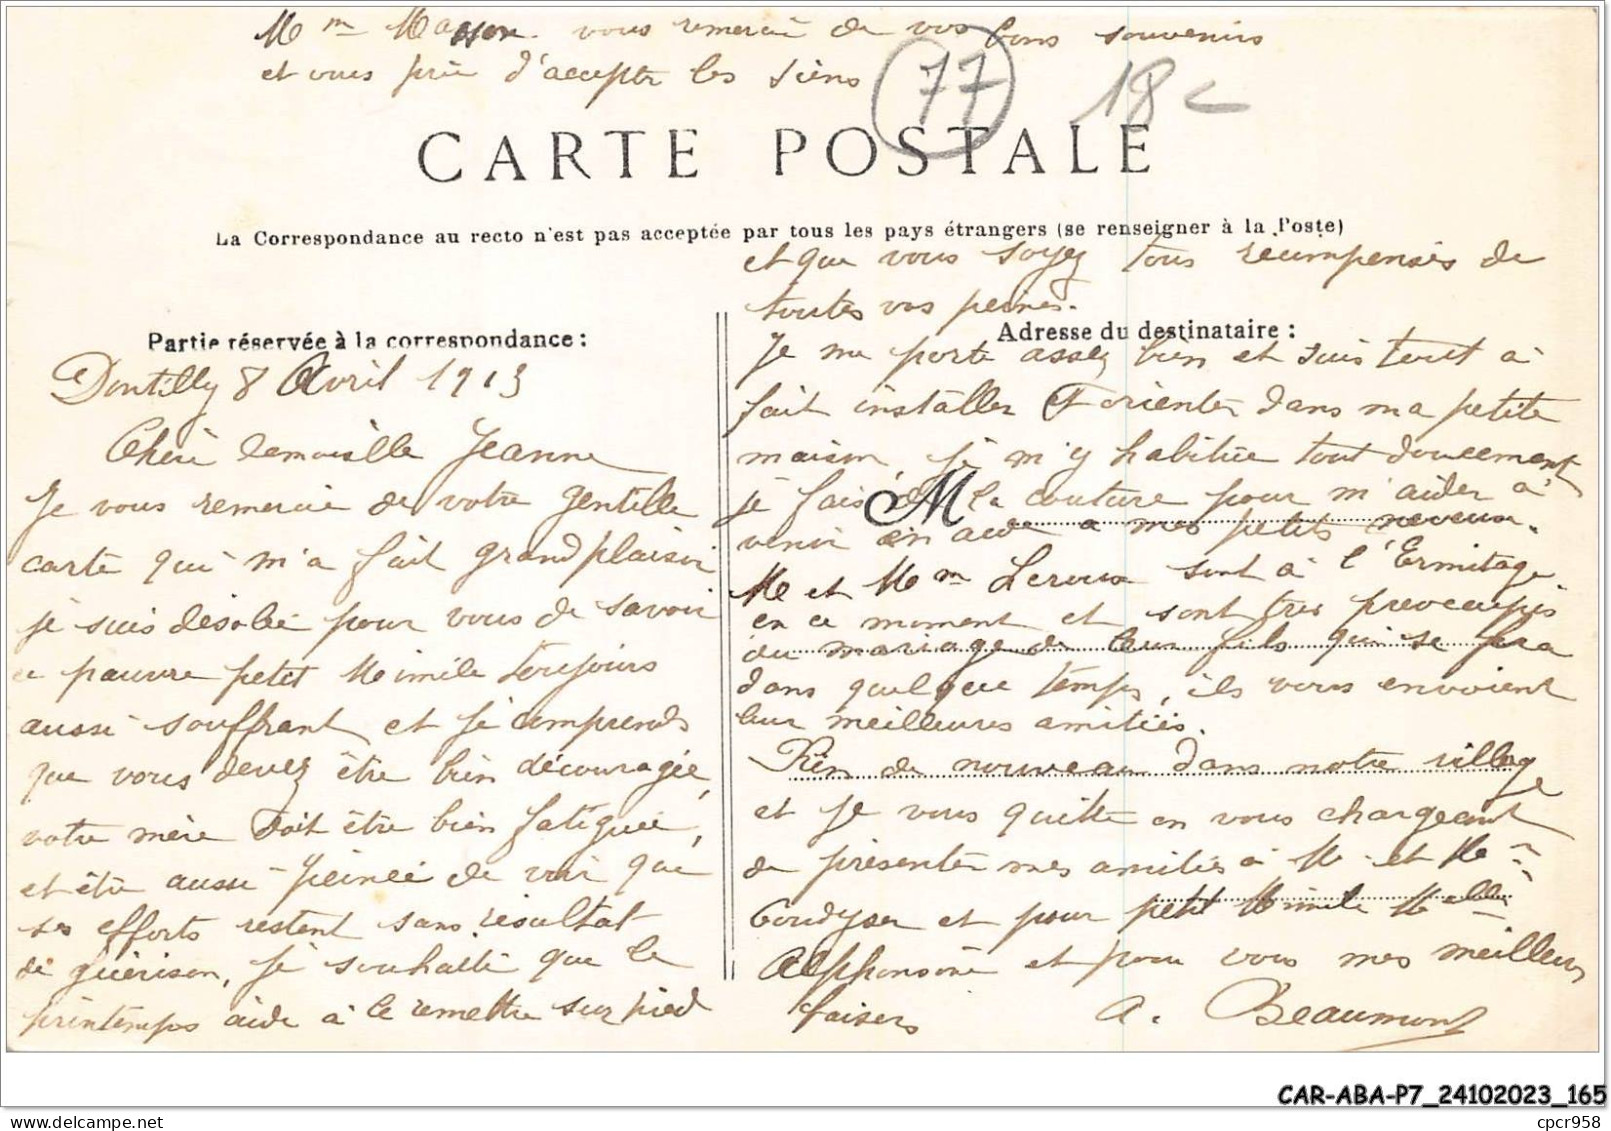 Mm Masson vous remercie de vos bons souvenirs
et vous prie d'accepter les siens
77
18
CARTE POSTALE
La Correspondance au recto n'est pas acceptée par tous les pays étrangers (se renseigner à la Poste)
Partie réservée à la correspondance :
Dontilly 8 Avril 1913
Chère demoiselle Jeanne
Je vous remercie de votre gentille
carte qui m'a fait grand plaisir
je suis désolée pour vous de savoir
ce pauvre petit Mimile toujours
aussi souffrant et je comprends
que vous devez être bien découragée,
votre mère doit être bien fatiguée,
et être aussi peinée de voir que
ses efforts restent sans résultat
de guérison, je souhaite que le
printemps aide à le remettre sur pied
et que vous soyez tous recompensés de
toutes vos peines.
Adresse du destinataire :
Je me porte assez bien et suis tout à
fait installer et orienter dans ma petite
maison, je m'y habitue tout doucement
je fais de la couture pour m'aider à
M
venir en aide a mes petits neveux.
M et Mm Leroux sont à l'Ermitage
en ce moment et sont tres preocupés
du mariage de leur fils qui se fera
dans quelque temps, ils vous envoient
leur meilleures amitiés.
Rien de nouveau dans notre village
et je vous quitte en vous chargeant
de présenter mes amitiés à M. et Mm
et pour petit Mimile Melle
Alphonsine et pour vous mes meilleurs
baisers A. Beaumont
CAR-ABA-P7_24102023_165
www.delcampe.net
cpcr958